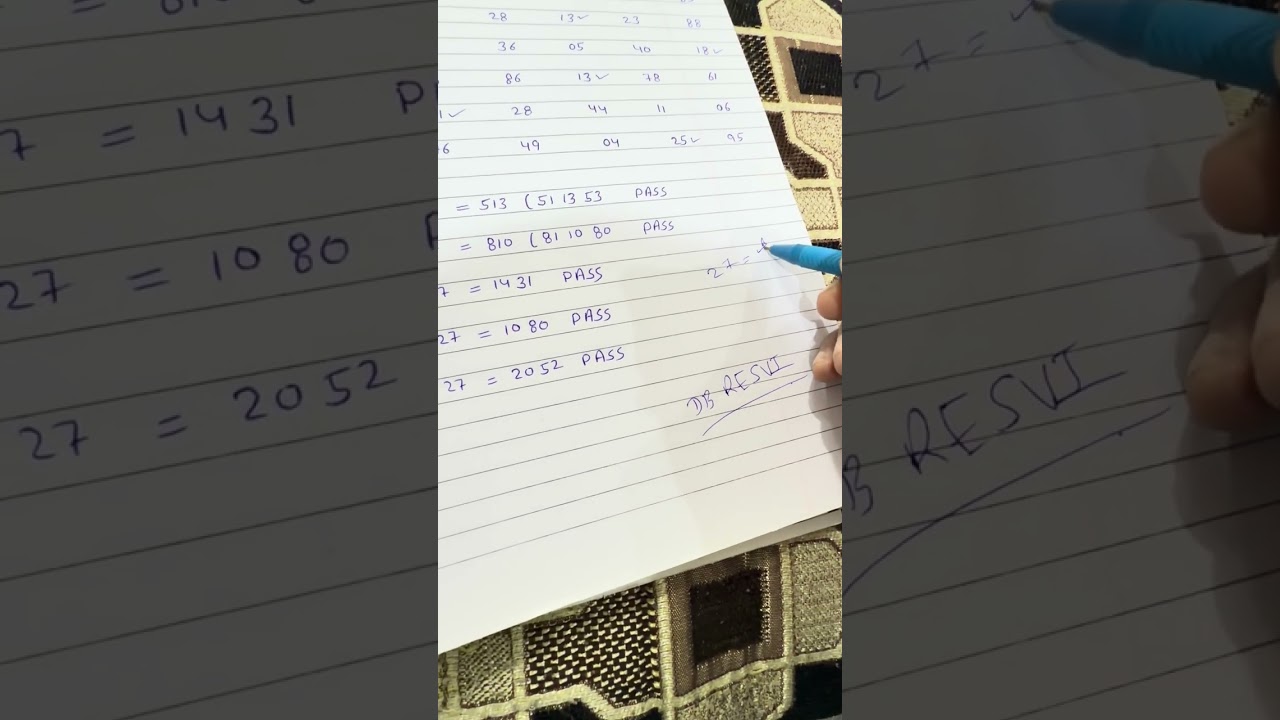 28 13✓ 23 88
36 05 40 18✓
86 13✓ 78 61
1✓ 28 44 11 06
6 49 04 25✓ 95
= 513 (51 13 53 PASS
= 810 (81 10 80 PASS
7 = 1431 PASS
27 = 1080 PASS
27 = 2052 PASS
27 =
DB RESVI